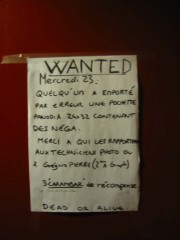 WANTED
Mercredi 23.
QUELQU'UN A EMPORTÉ
PAR ERREUR UNE POCHETTE
PANODIA 24x32 CONTENANT
DES NÉGA.
MERCI A QUI LES RAPPORTERA
AUX TECHNICIENS PHOTO OU
PIERRE (2°
3 "CARAMBAR" de récompense
DEAD OR ALIVE